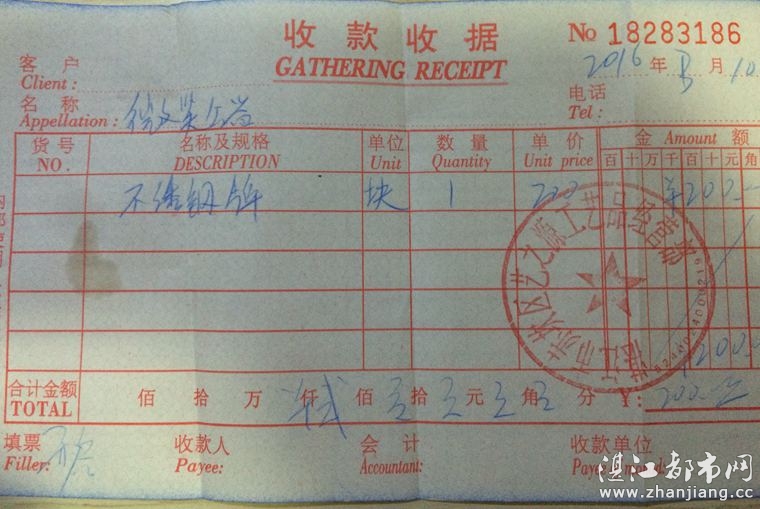 收款收据
No 18283186
GATHERING RECEIPT
客户
Client:
2016年 月10
名称
Appellation:
电话
Tel:
货号 名称及规格 单位 数量 单价 金 Amount 额
NO. DESCRIPTION Unit Quantity Unit price 百十万千百十元角
不锈钢牌 块 1 200 ¥200.-
湛江市赤坎区艺之源工艺品经营部
200.-
合计金额
TOTAL 佰 拾 万 仟 贰 佰 拾 元 角 分 ¥: 200.
填票 收款人 会计 收款单位
Filler: Payee: Accountant:
湛江都市网
www.zhanjiang.cc